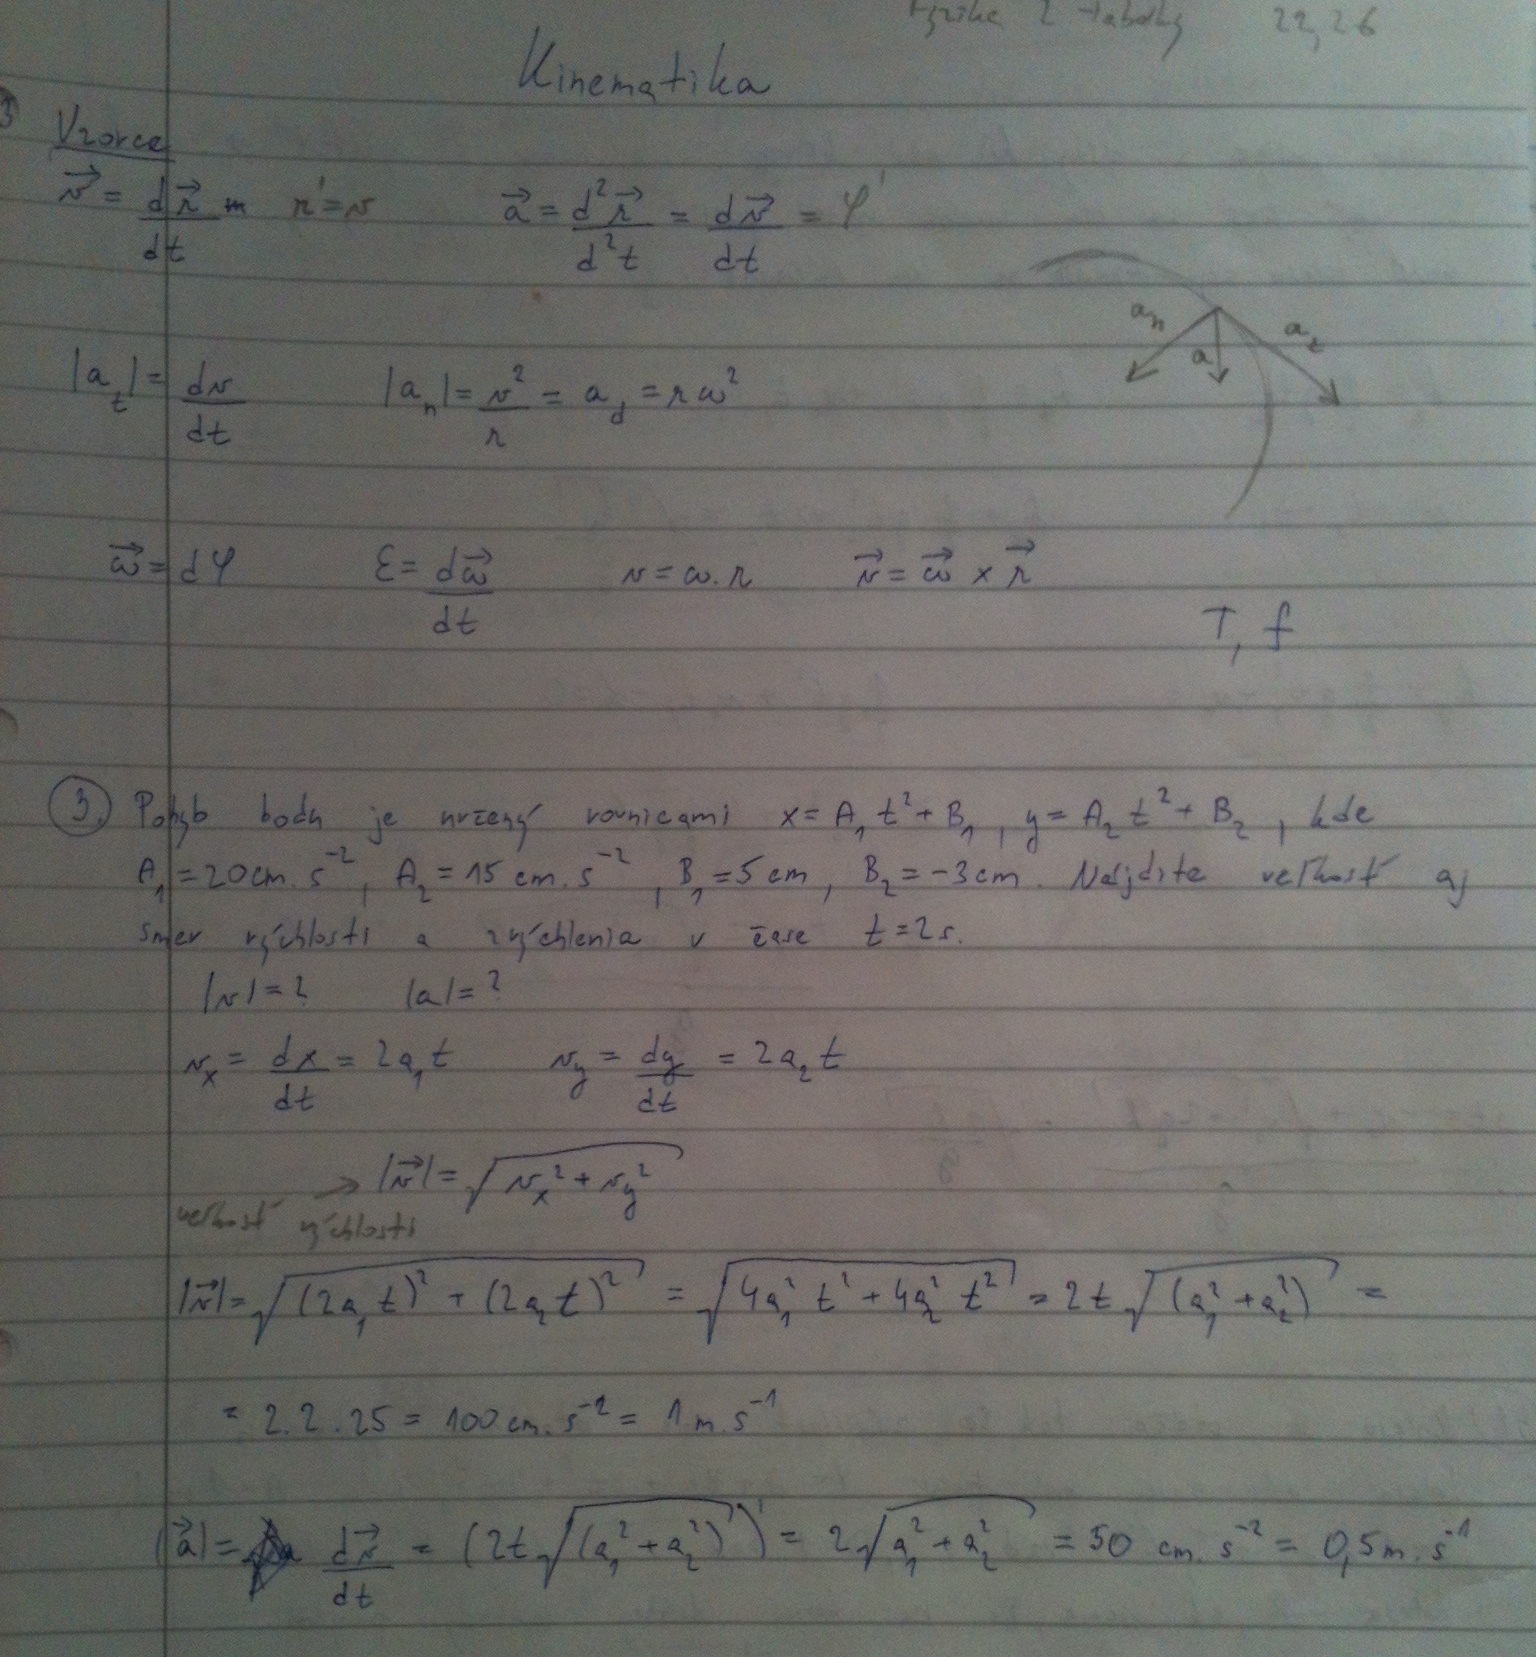 Fyzika 2 tabuľky 22,26
Kinematika
Vzorce
v⃗ = dr⃗/dt r' = v a⃗ = d²r⃗/d²t = dv⃗/dt = φ'
a_n a a_t
|a_t| = dv/dt |a_n| = v²/r = a_d = rω²
ω⃗ = dφ ε = dω⃗/dt v = ω.r v⃗ = ω⃗ × r⃗
T, f
3. Pohyb bodu je určený rovnicami x = A₁t² + B₁, y = A₂t² + B₂, kde
A₁ = 20cm.s⁻², A₂ = 15 cm.s⁻², B₁ = 5 cm, B₂ = -3cm. Nájdite veľkosť aj
smer rýchlosti a zrýchlenia v čase t = 2s.
|v| = ? |a| = ?
v_x = dx/dt = 2a₁t v_y = dy/dt = 2a₂t
|v⃗| = √(v_x² + v_y²)
veľkosť rýchlosti
|v⃗| = √((2a₁t)² + (2a₂t)²) = √(4a₁²t² + 4a₂²t²) = 2t√(a₁² + a₂²) =
= 2.2.25 = 100 cm.s⁻² = 1 m.s⁻¹
|a⃗| = dv⃗/dt = (2t√(a₁² + a₂²))' = 2√(a₁² + a₂²) = 50 cm.s⁻² = 0,5m.s⁻¹